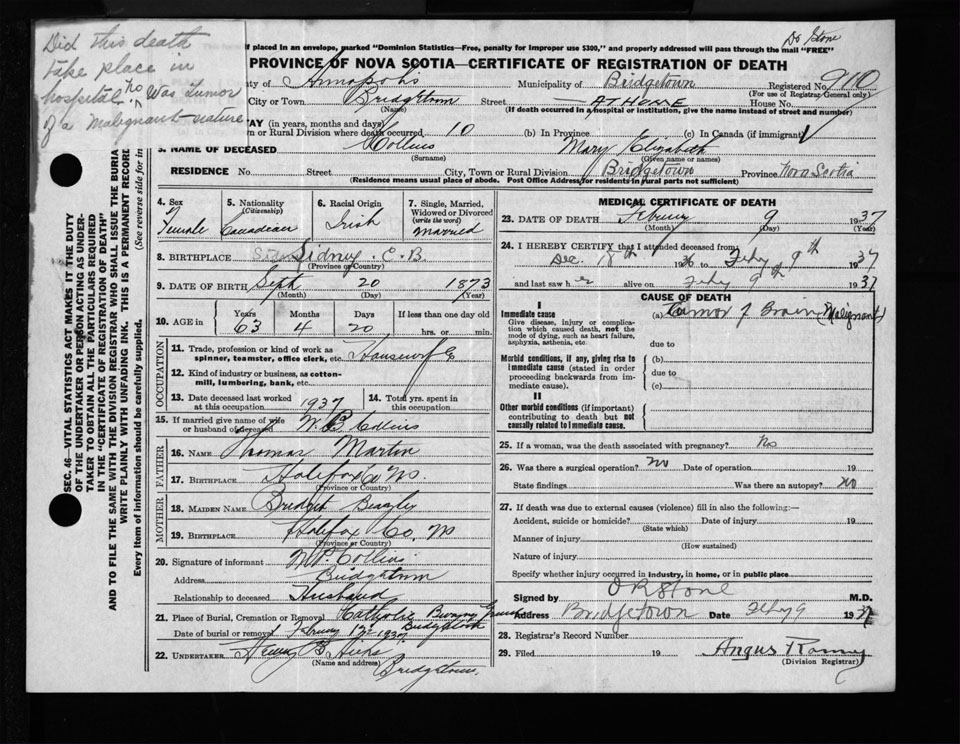 Did this death
take place in
hospital no Was tumor
of a malignant nature
Dr Stone
If placed in an envelope, marked "Dominion Statistics—Free, penalty for improper use $300," and properly addressed will pass through the mail "FREE"
PROVINCE OF NOVA SCOTIA—CERTIFICATE OF REGISTRATION OF DEATH
ty of Annapolis Municipality of Bridgetown Registered No. 9110
(For use of Registrar-General only)
City or Town Bridgetown Street AT HOME House No.
(Name) (If death occurred in a hospital or institution, give its name instead of street and number)
AY (in years, months and days)
n or Rural Division where death occurred 10 (b) In Province (c) In Canada (if immigrant)
3. NAME OF DECEASED Collins Mary Elizabeth
(Surname) (Given name or names)
RESIDENCE No. Street City, Town or Rural Division Bridgetown Province Nova Scotia
(Residence means usual place of abode. Post Office Address for residents in rural parts not sufficient)
SEC. 46—VITAL STATISTICS ACT MAKES IT THE DUTY
OF THE UNDERTAKER OR PERSON ACTING AS UNDER-
TAKER TO OBTAIN ALL THE PARTICULARS REQUIRED
IN THE "CERTIFICATE OF REGISTRATION OF DEATH"
AND TO FILE THE SAME WITH THE DIVISION REGISTRAR WHO SHALL ISSUE THE BURIA
WRITE PLAINLY WITH UNFADING INK. THIS IS A PERMANENT RECORD
Every item of information should be carefully supplied. (See reverse side for in
4. Sex 5. Nationality 6. Racial Origin 7. Single, Married,
(Citizenship) Widowed or Divorced
(write the word)
Female Canadian Irish Married
8. BIRTHPLACE Sidney C.B.
(Province or Country)
9. DATE OF BIRTH Sept 20 1873
(Month) (Day) (Year)
10. AGE in Years Months Days If less than one day old
63 4 20 hrs. or min.
OCCUPATION
11. Trade, profession or kind of work as
spinner, teamster, office clerk, etc. Housewife
12. Kind of industry or business, as cotton-
mill, lumbering, bank, etc.
13. Date deceased last worked 14. Total yrs. spent in
at this occupation 1937 this occupation
15. If married give name of wife
or husband of deceased W. B Collins
FATHER
16. NAME Thomas Martin
17. BIRTHPLACE Halifax Co NS.
(Province or Country)
MOTHER
18. MAIDEN NAME Bridget
19. BIRTHPLACE Halifax Co, NS
(Province or Country)
20. Signature of informant Collins
Address Bridgetown
Relationship to deceased Husband
21. Place of Burial, Cremation or Removal Catholic Burying Ground
Bridgetown
Date of burial or removal 1937
22. UNDERTAKER B. Hicks
(Name and address) Bridgetown.
MEDICAL CERTIFICATE OF DEATH
23. DATE OF DEATH 9 1937
(Month) (Day) (Year)
24. I HEREBY CERTIFY that I attended deceased from:
Dec. 18th 1936 to Feby 9th 1937
and last saw her alive on Feby 9th 1937
CAUSE OF DEATH
I
Immediate cause (a) Tumor of Brain (Malignant)
Give disease, injury or complica-
tion which caused death, not the
mode of dying, such as heart failure,
asphyxia, asthenia, etc.
due to
Morbid conditions, if any, giving rise to (b)
immediate cause (stated in order due to
proceeding backwards from im-
mediate cause). (c)
II
Other morbid conditions (if important)
contributing to death but not
causally related to immediate cause.
25. If a woman, was the death associated with pregnancy? No
26. Was there a surgical operation? No Date of operation 19
State findings Was there an autopsy? No
27. If death was due to external causes (violence) fill in also the following:—
Accident, suicide or homicide? Date of injury 19
(State which)
Manner of injury
(How sustained)
Nature of injury
Specify whether injury occurred in industry, in home, or in public place
Signed by Stone M.D.
Address Bridgetown Date Feby 9 1937
28. Registrar's Record Number
29. Filed 19 Angus
(Division Registrar)